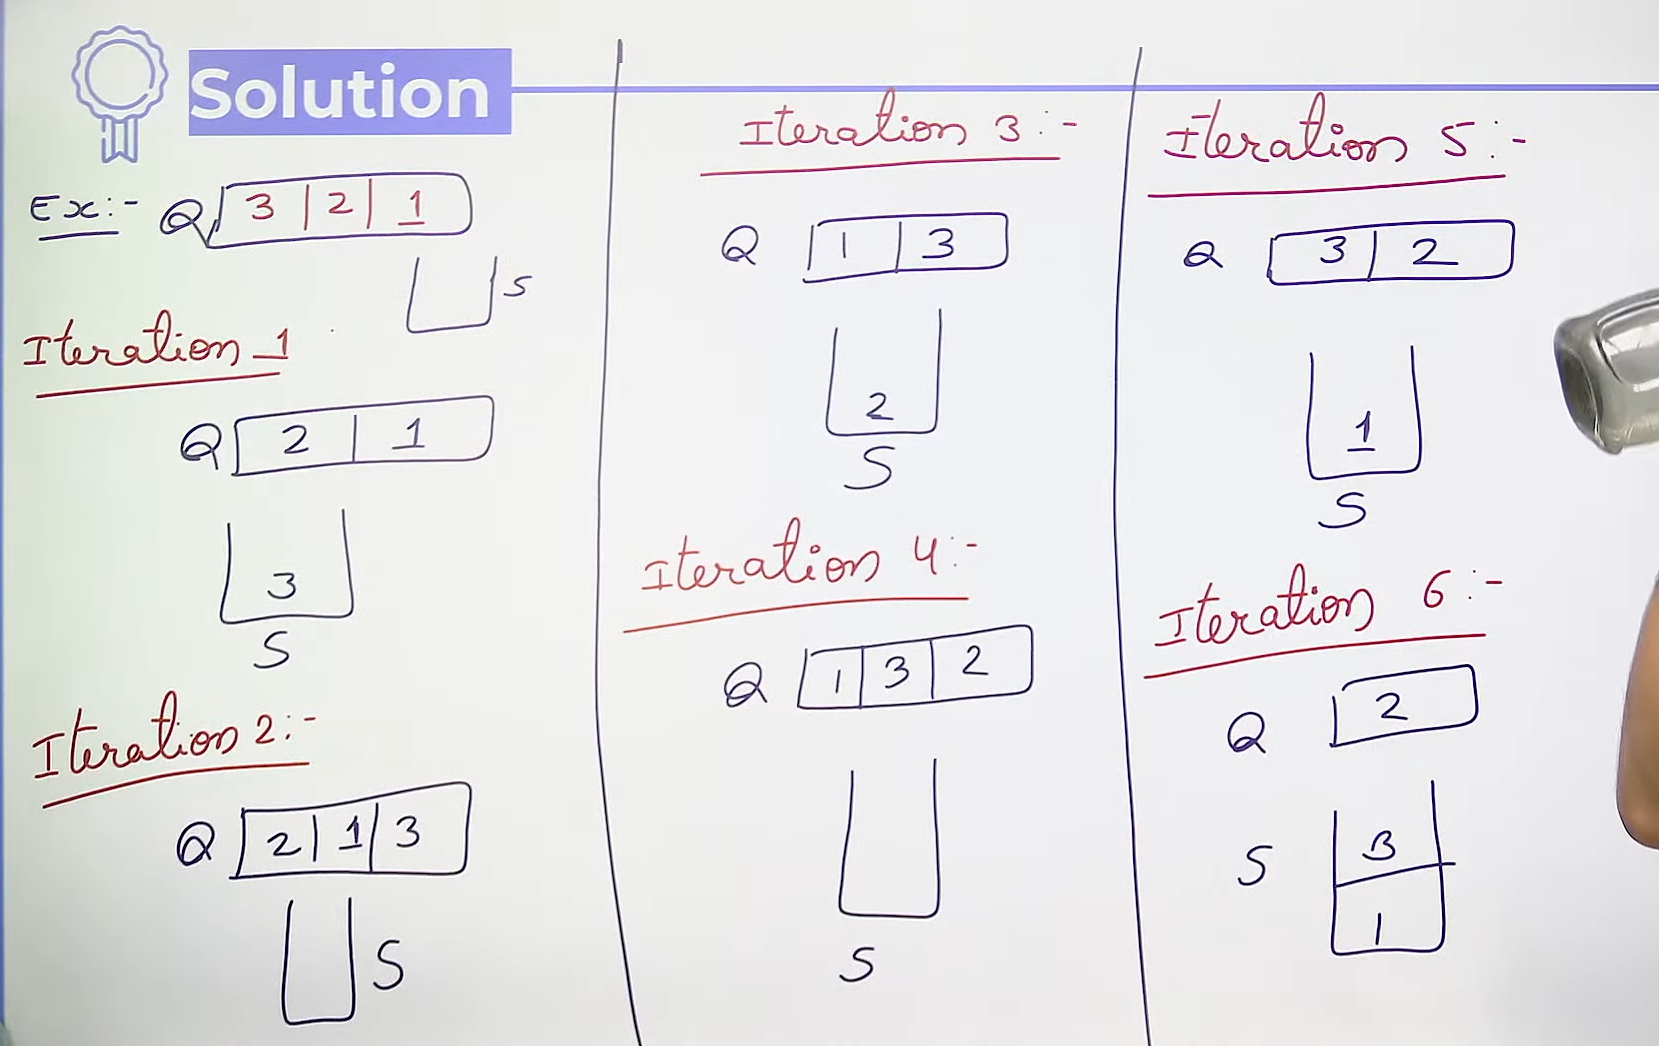 Solution
Ex:- Q 3 | 2 | 1
S
Iteration 1
Q 2 | 1
3
S
Iteration 2:-
Q 2 | 1 | 3
S
Iteration 3:-
Q 1 | 3
2
S
Iteration 4:-
Q 1 | 3 | 2
S
Iteration 5:-
Q 3 | 2
1
S
Iteration 6:-
Q 2
S 3
1